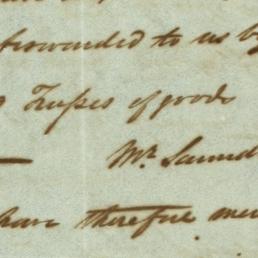 forwarded to us by
Trusses of goods
— Mr. Saund
have therefore me